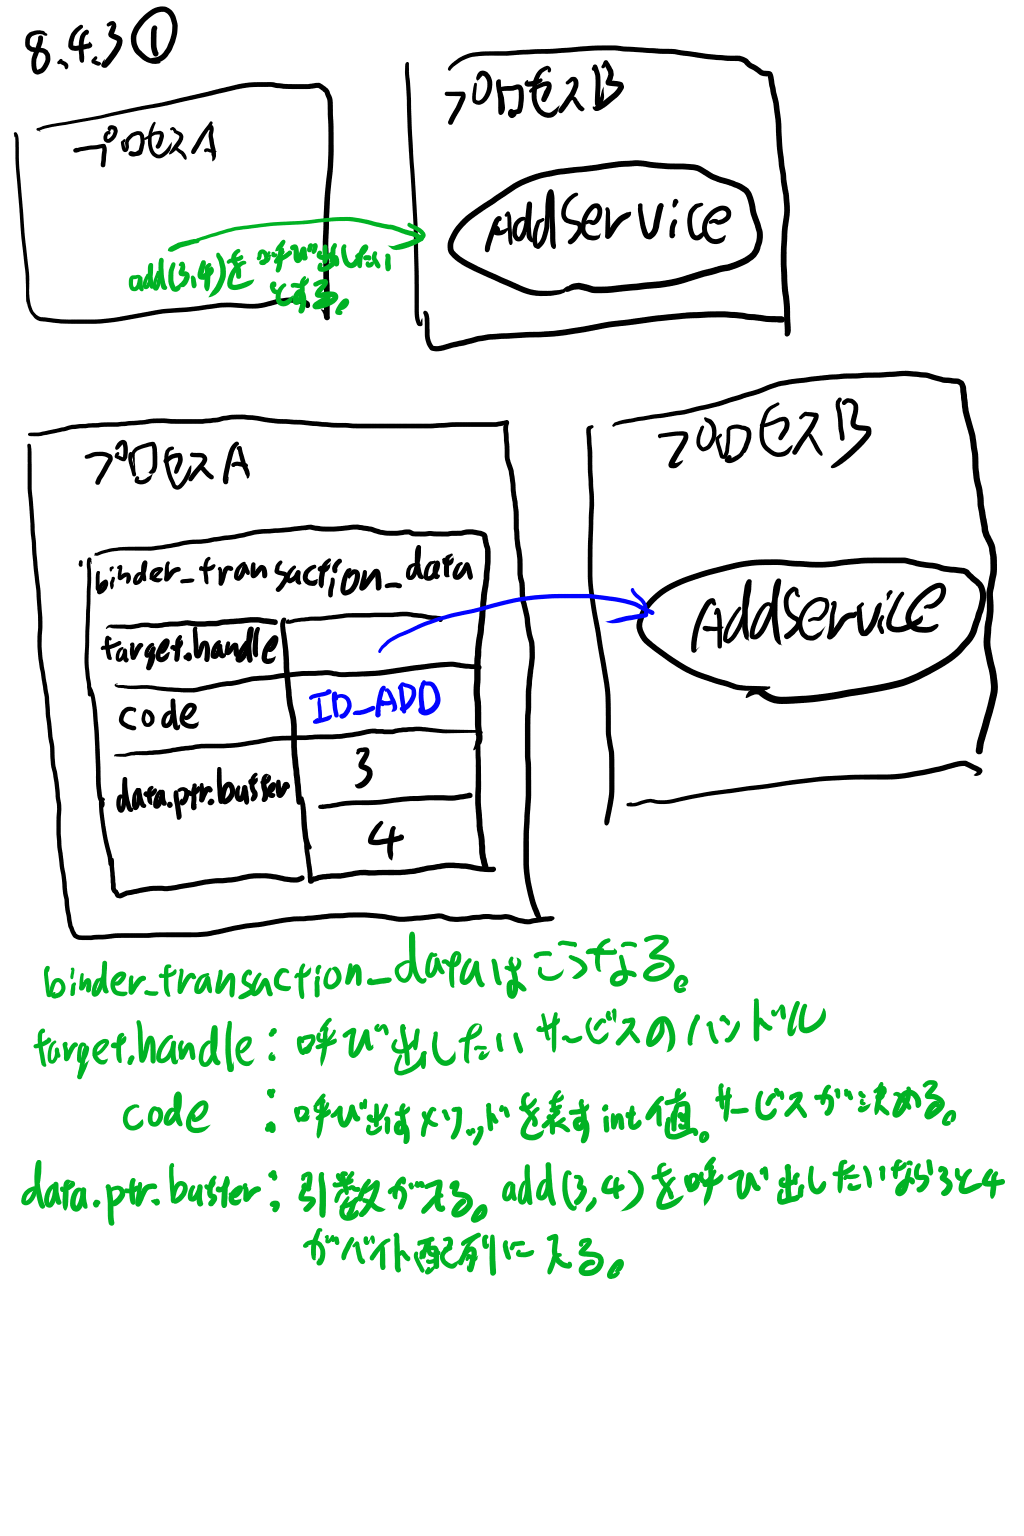 8.4.3①
プロセスA
プロセスB
AddService
add(3,4)を呼び出したい
とする。
プロセスA
プロセスB
binder_transaction_data
target.handle
code
ID_ADD
data.ptr.buffer
3
4
AddService
binder_transaction_dataはこうなる。
target.handle：呼び出したいサービスのハンドル
code：呼び出すメソッドを表すint値。サービスが決める。
data.ptr.buffer：引数が入る。add(3,4)を呼び出したいなら3と4
がバイト配列に入る。